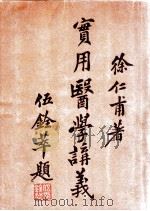 徐仁甫著
實用醫學講義
伍銓萃題